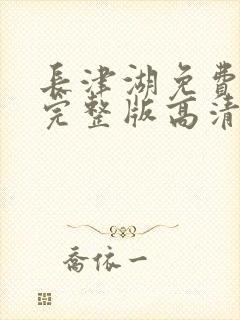 長津湖免費
完整版高清
喬依一